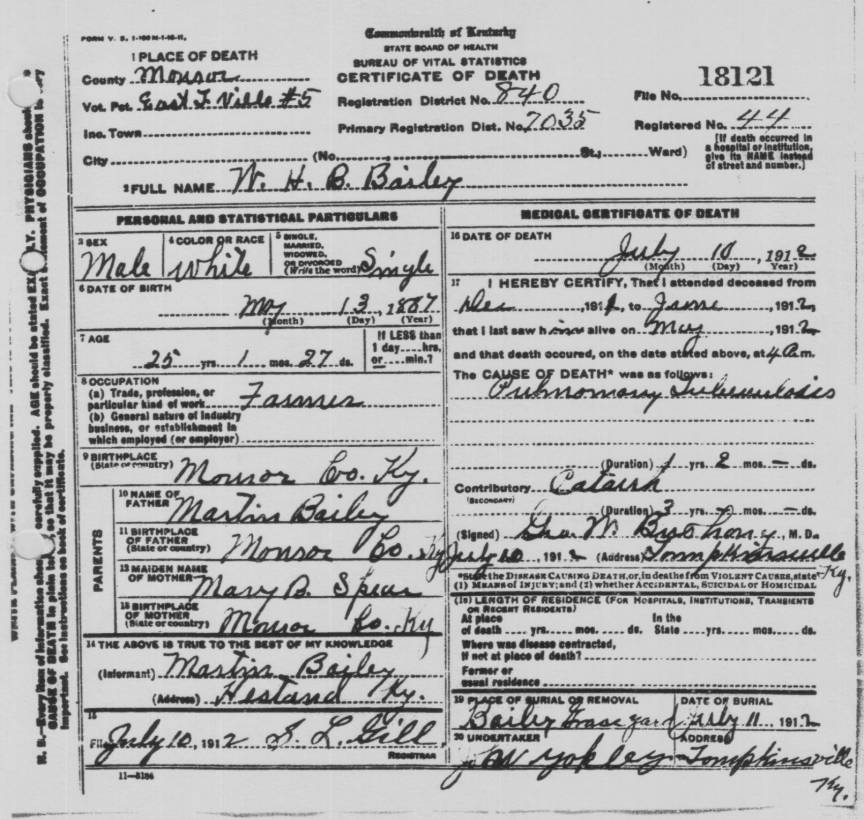 FORM V. S. 1-100 M-1-16-11.
Commonwealth of Kentucky
STATE BOARD OF HEALTH
BUREAU OF VITAL STATISTICS
CERTIFICATE OF DEATH
1 PLACE OF DEATH
County Monroe
Vot. Pct. East T. Ville #5
Inc. Town
City (No. St., Ward)
Registration District No. 840
Primary Registration Dist. No. 7035
File No. 18121
Registered No. 44
[If death occurred in
a hospital or institution,
give its NAME instead
of street and number.]
2 FULL NAME W. H. B. Bailey
PERSONAL AND STATISTICAL PARTICULARS
3 SEX
Male
4 COLOR OR RACE
White
5 SINGLE,
MARRIED,
WIDOWED,
OR DIVORCED
(Write the word) Single
6 DATE OF BIRTH
May 13 1887
(Month) (Day) (Year)
7 AGE
25 yrs. 1 mos. 27 ds.
If LESS than
1 day....hrs.
or....min.?
8 OCCUPATION
(a) Trade, profession, or
particular kind of work Farmer
(b) General nature of industry
business, or establishment in
which employed (or employer)
9 BIRTHPLACE
(State or country) Monroe Co. Ky.
PARENTS
10 NAME OF
FATHER Martin Bailey
11 BIRTHPLACE
OF FATHER
(State or country) Monroe Co. Ky
12 MAIDEN NAME
OF MOTHER Mary B. Spear
13 BIRTHPLACE
OF MOTHER
(State or country) Monroe Co. Ky
14 THE ABOVE IS TRUE TO THE BEST OF MY KNOWLEDGE
(Informant) Martin Bailey
(Address) Hestand Ky.
15
Filed July 10, 1912 S. L. Gill
REGISTRAR
11-3184
MEDICAL CERTIFICATE OF DEATH
16 DATE OF DEATH
July 10, 1912
(Month) (Day) (Year)
17 I HEREBY CERTIFY, That I attended deceased from
Dec, 1911, to June, 1912,
that I last saw him alive on May, 1912
and that death occured, on the date stated above, at 4 a.m.
The CAUSE OF DEATH* was as follows:
Pulmonary Tuberculosis
(Duration) 1 yrs. 2 mos. — ds.
Contributory Catarrh
(SECONDARY)
(Duration) 3 yrs. mos. — ds.
(Signed) Geo. W. Bushong, M. D.
July 10, 1912 (Address) Tompkinsville Ky.
*State the DISEASE CAUSING DEATH, or, in deaths from VIOLENT CAUSES, state
(1) MEANS OF INJURY; and (2) whether ACCIDENTAL, SUICIDAL OR HOMICIDAL
(18) LENGTH OF RESIDENCE (FOR HOSPITALS, INSTITUTIONS, TRANSIENTS
OR RECENT RESIDENTS)
At place In the
of death yrs. mos. ds. State yrs. mos. ds.
Where was disease contracted,
if not at place of death?
Former or
usual residence
19 PLACE OF BURIAL OR REMOVAL
Bailey Grave yard
DATE OF BURIAL
July 11, 1912
20 UNDERTAKER
J W Yokley
ADDRESS
Tompkinsville
Ky.
N. B.—Every item of information should be carefully supplied. AGE should be stated EXACTLY. PHYSICIANS should
CAUSE OF DEATH in plain terms, so that it may be properly classified. Exact statement of OCCUPATION is very
important. See instructions on back of certificate.